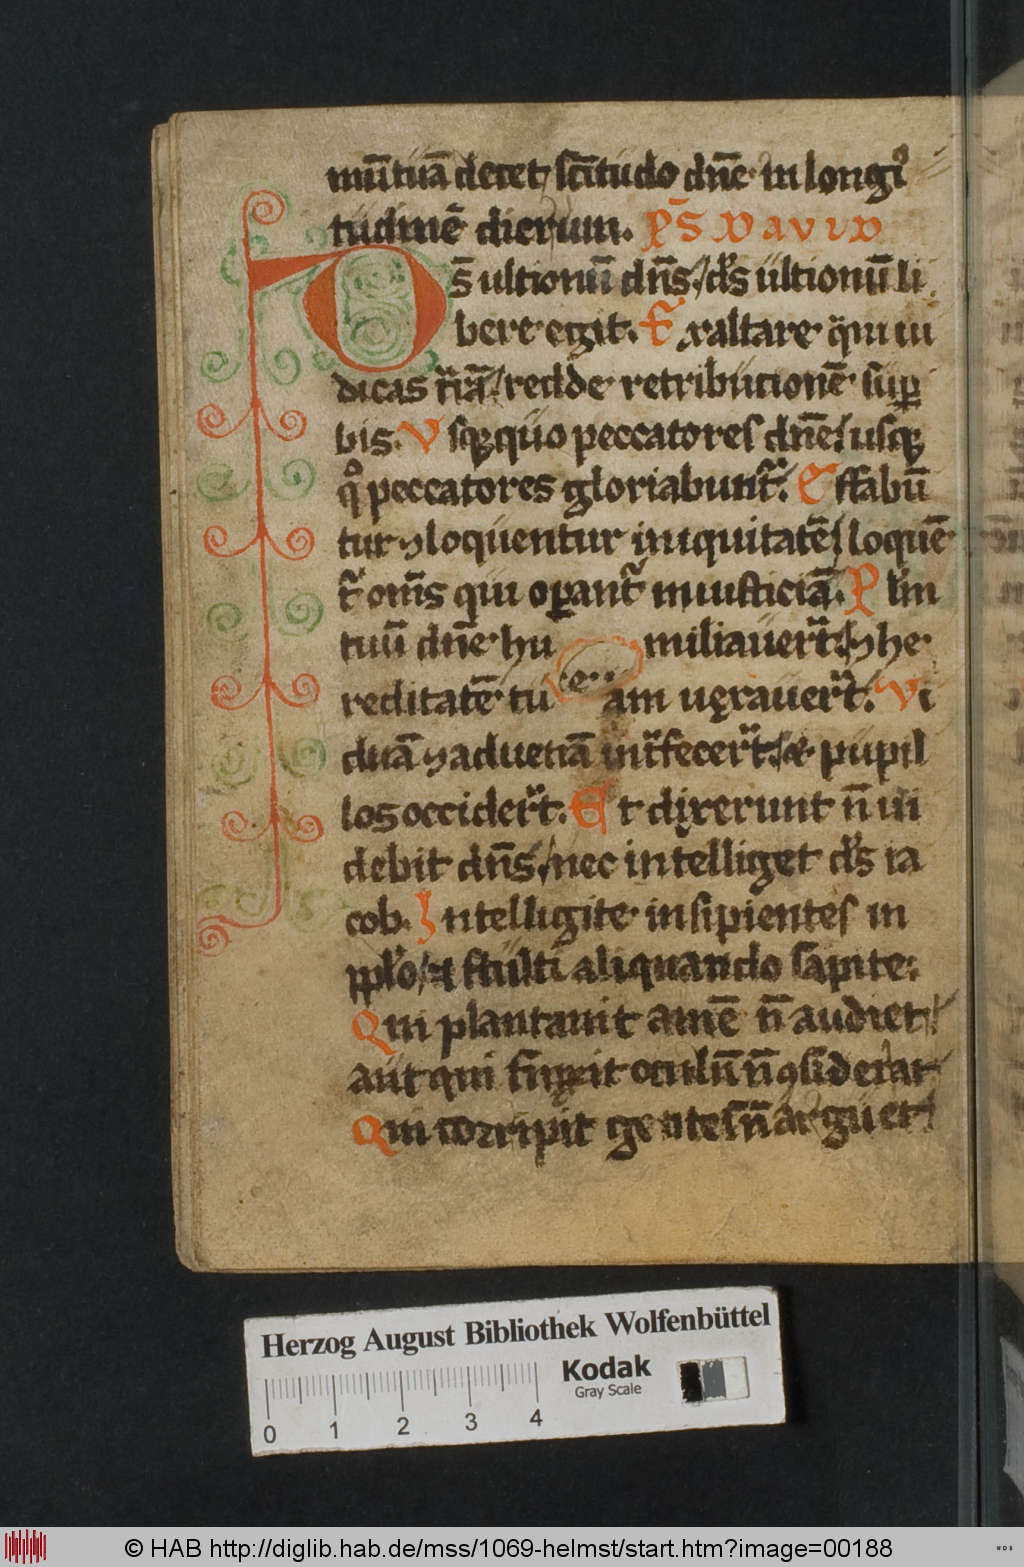 mū tuā decet scītudo dn̄e in longi
tudinē dierum. Ps̄ David
Ds̄ ultionū dn̄s ds̄ ultionū li
bere egit. Exaltare qui iu
dicas t̄rā redde retributionē suꝑ
bis. Usq̢quo peccatores dn̄e usq̢
qͦ peccatores gloriabunt̄. Effabū
tur ⁊ loquentur iniquitatē loquē
t̄ om̄s qui oꝑant̄ iniusticiā. Pl̄m
tuū dn̄e humiliauer̄t ⁊ he
reditatē tuam uexauer̄t. Vi
duā ⁊ aduenā int̄fecer̄t & pupil
los occider̄t. Et dixerunt n̄ ui
debit dn̄s nec intelliget ds̄ ia
cob. Intelligite insipientes in
ppl̄o et stulti aliquando sapite.
Qui plantauit aurē n̄ audiet
aut qui finxit oculū n̄ ꝯsiderat
Qui corripit gentes n̄ arguet
Herzog August Bibliothek Wolfenbüttel
Kodak
Gray Scale
0 1 2 3 4
© HAB http://diglib.hab.de/mss/1069-helmst/start.htm?image=00188